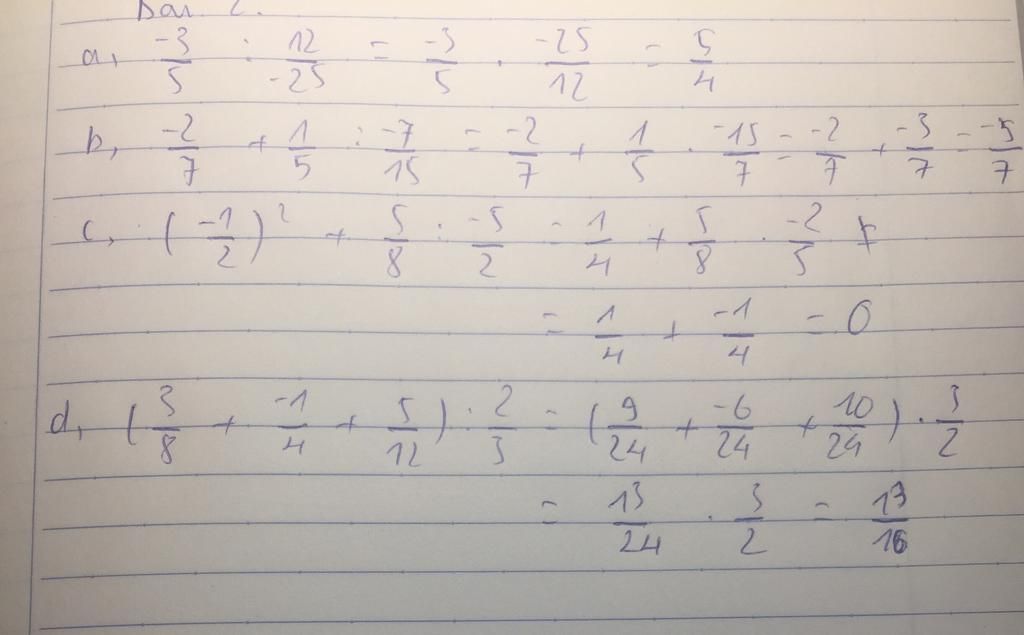 Bài 2.
a, \frac{-3}{5} : \frac{12}{-25} = \frac{-3}{5} . \frac{-25}{12} = \frac{5}{4}
b, \frac{-2}{7} + \frac{1}{5} : \frac{-7}{15} = \frac{-2}{7} + \frac{1}{5} . \frac{-15}{7} = \frac{-2}{7} + \frac{-3}{7} = \frac{-5}{7}
c, (\frac{-1}{2})^2 + \frac{5}{8} : \frac{-5}{2} = \frac{1}{4} + \frac{5}{8} . \frac{-2}{5}
= \frac{1}{4} + \frac{-1}{4} = 0
d, (\frac{3}{8} + \frac{-1}{4} + \frac{5}{12}) : \frac{2}{3} = (\frac{9}{24} + \frac{-6}{24} + \frac{10}{24}) . \frac{3}{2}
= \frac{13}{24} . \frac{3}{2} = \frac{13}{16}